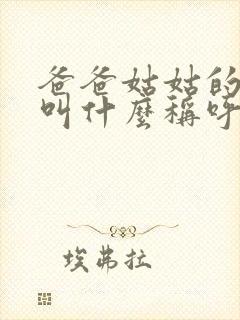 爸爸姑姑的
叫什麼稱呼
埃弗拉